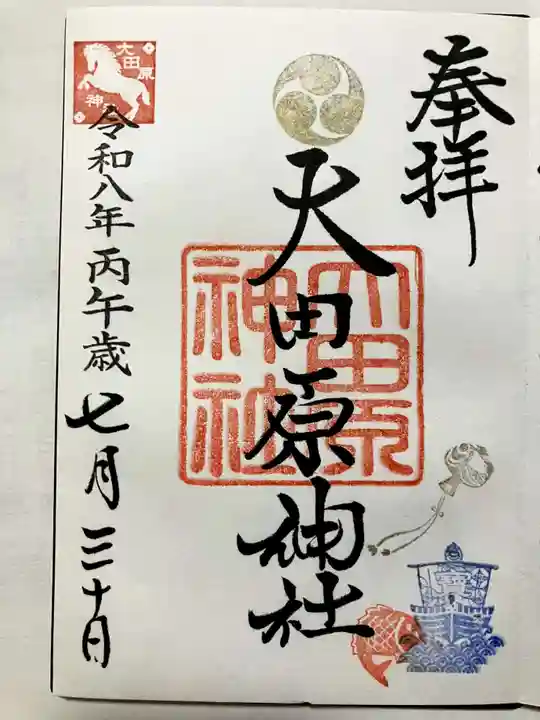 奉拝
大田原神社
大田原
神社
令和八年丙午歳七月三十日
大田原
神